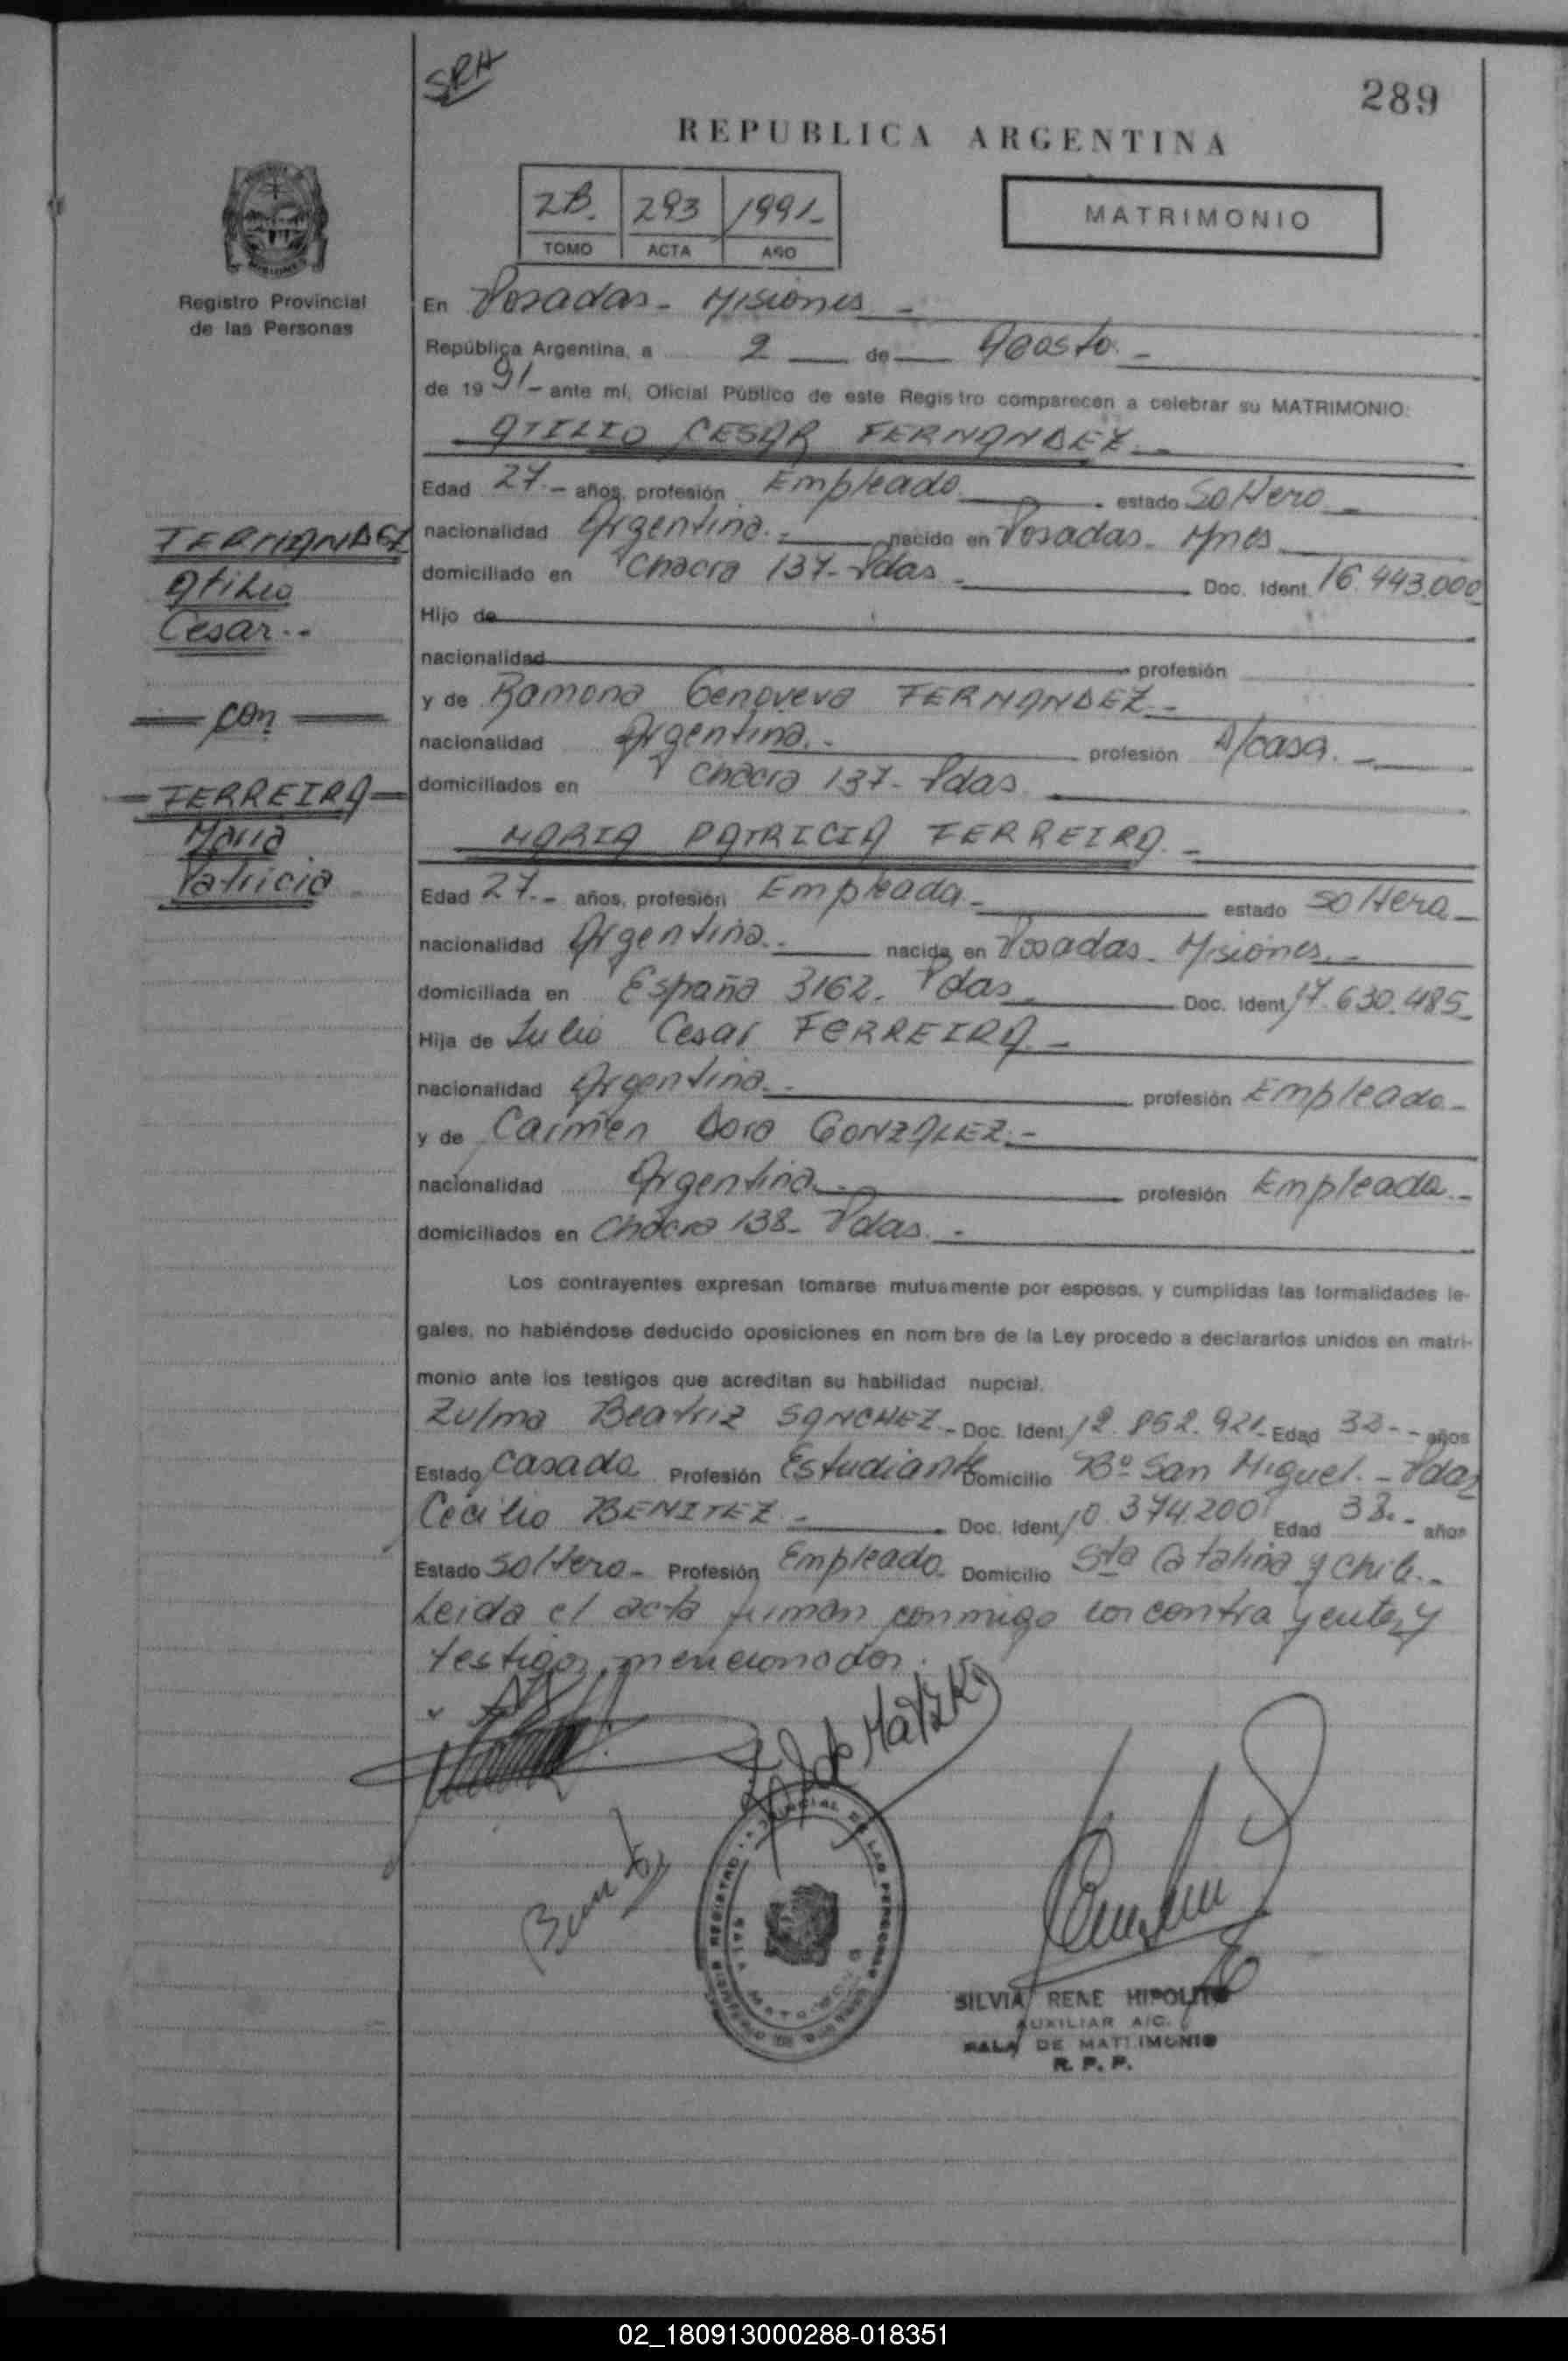 SRH
289
REPUBLICA ARGENTINA
2B. 293 1991-
TOMO ACTA AÑO
MATRIMONIO
Registro Provincial
de las Personas
En Posadas - Misiones -
República Argentina, a 2 de Agosto. -
de 1991 - ante mí, Oficial Público de este Registro comparecen a celebrar su MATRIMONIO:
ATILIO CESAR FERNANDEZ. -
Edad 27. - años, profesión Empleado estado Soltero -
nacionalidad Argentina. - nacido en Posadas - Mnes
domiciliado en Chacra 137 - Pdas - Doc. Ident. 16.443.000
Hijo de
nacionalidad profesión
y de Ramona Genoveva FERNANDEZ -
nacionalidad Argentina. - profesión A/casa. -
domiciliados en Chacra 137 - Pdas.
MARIA PATRICIA FERREIRA. -
Edad 27. - años, profesión Empleada - estado soltera -
nacionalidad Argentina. - nacida en Posadas - Misiones. -
domiciliada en España 3162. Pdas. Doc. Ident. 17.630.485 -
Hija de Julio Cesar FERREIRA. -
nacionalidad Argentina. - profesión Empleado -
y de Carmen Dora GONZALEZ. -
nacionalidad Argentina. - profesión Empleada. -
domiciliados en Chacra 138 - Pdas. -
Los contrayentes expresan tomarse mutuamente por esposos, y cumplidas las formalidades le-
gales, no habiéndose deducido oposiciones en nom bre de la Ley procedo a declararlos unidos en matri-
monio ante los testigos que acreditan su habilidad nupcial.
Zulma Beatriz SANCHEZ - Doc. Ident. 12.852.921 - Edad 33 - - años
Estado Casada Profesión Estudiante Domicilio Bº San Miguel. - Pdas
Cecilio BENITEZ - Doc. Ident. 10.374.200 Edad 38. - años
Estado soltero - Profesión Empleado - Domicilio Sta Catalina y Chile. -
Leida el acta firman conmigo los contrayentes y
testigos mencionados.
FERNANDEZ
Atilio
Cesar - -
con
- FERREIRA -
Maria
Patricia
de Matzki
REGISTRO PROVINCIAL DE LAS PERSONAS
SILVIA RENE HIPOLITO
AUXILIAR A/C.
SALA DE MATRIMONIO
R. P. P.
02_180913000288-018351